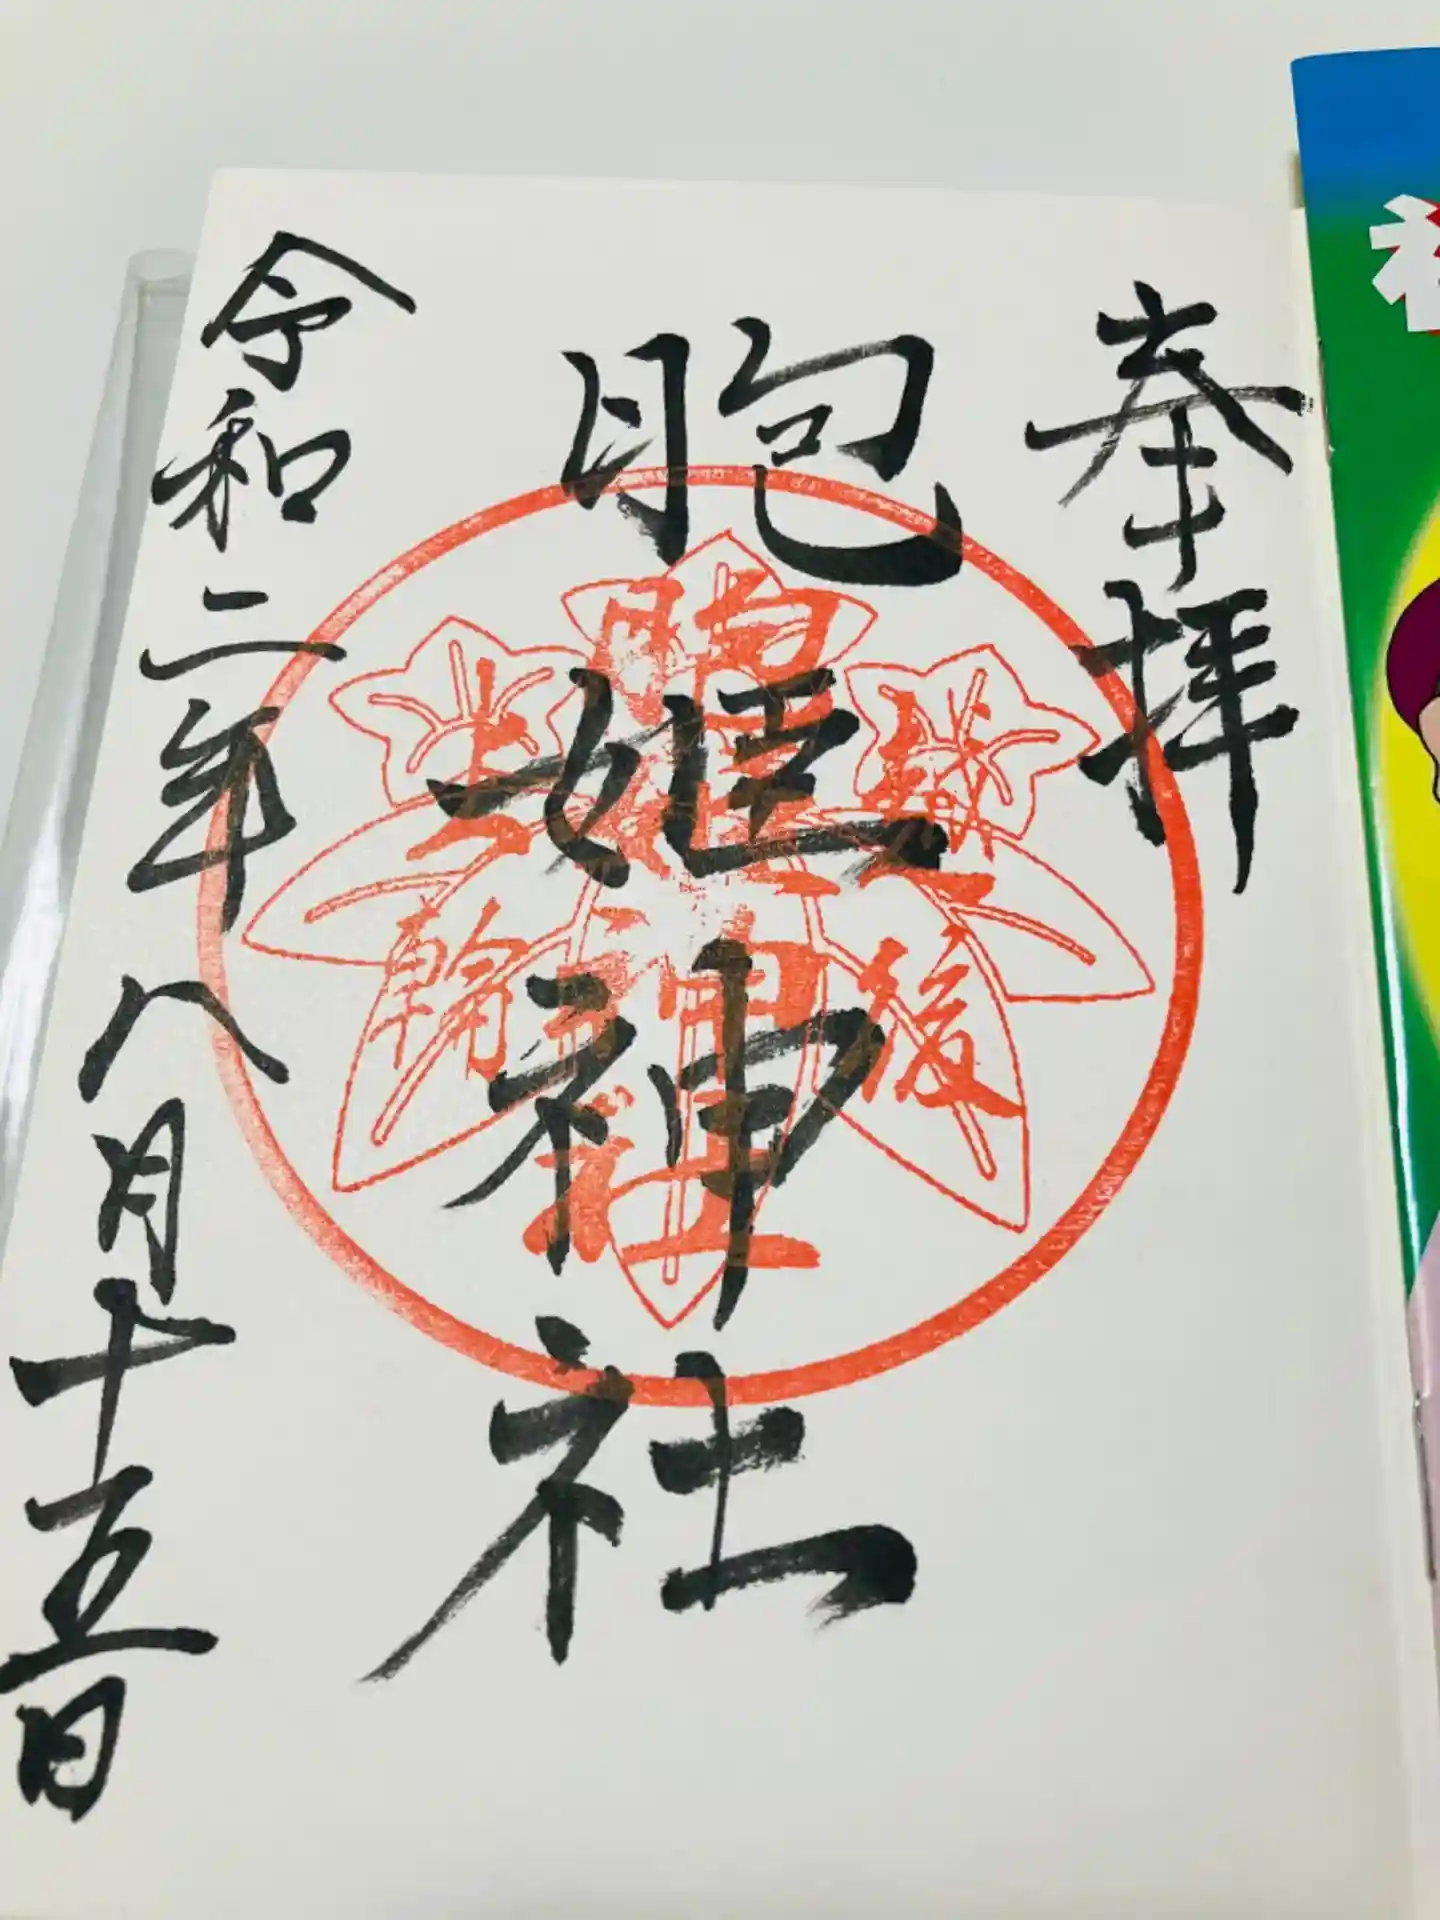 奉拝
胞姫神社
令和二年八月十五日
越後
胞姫神社